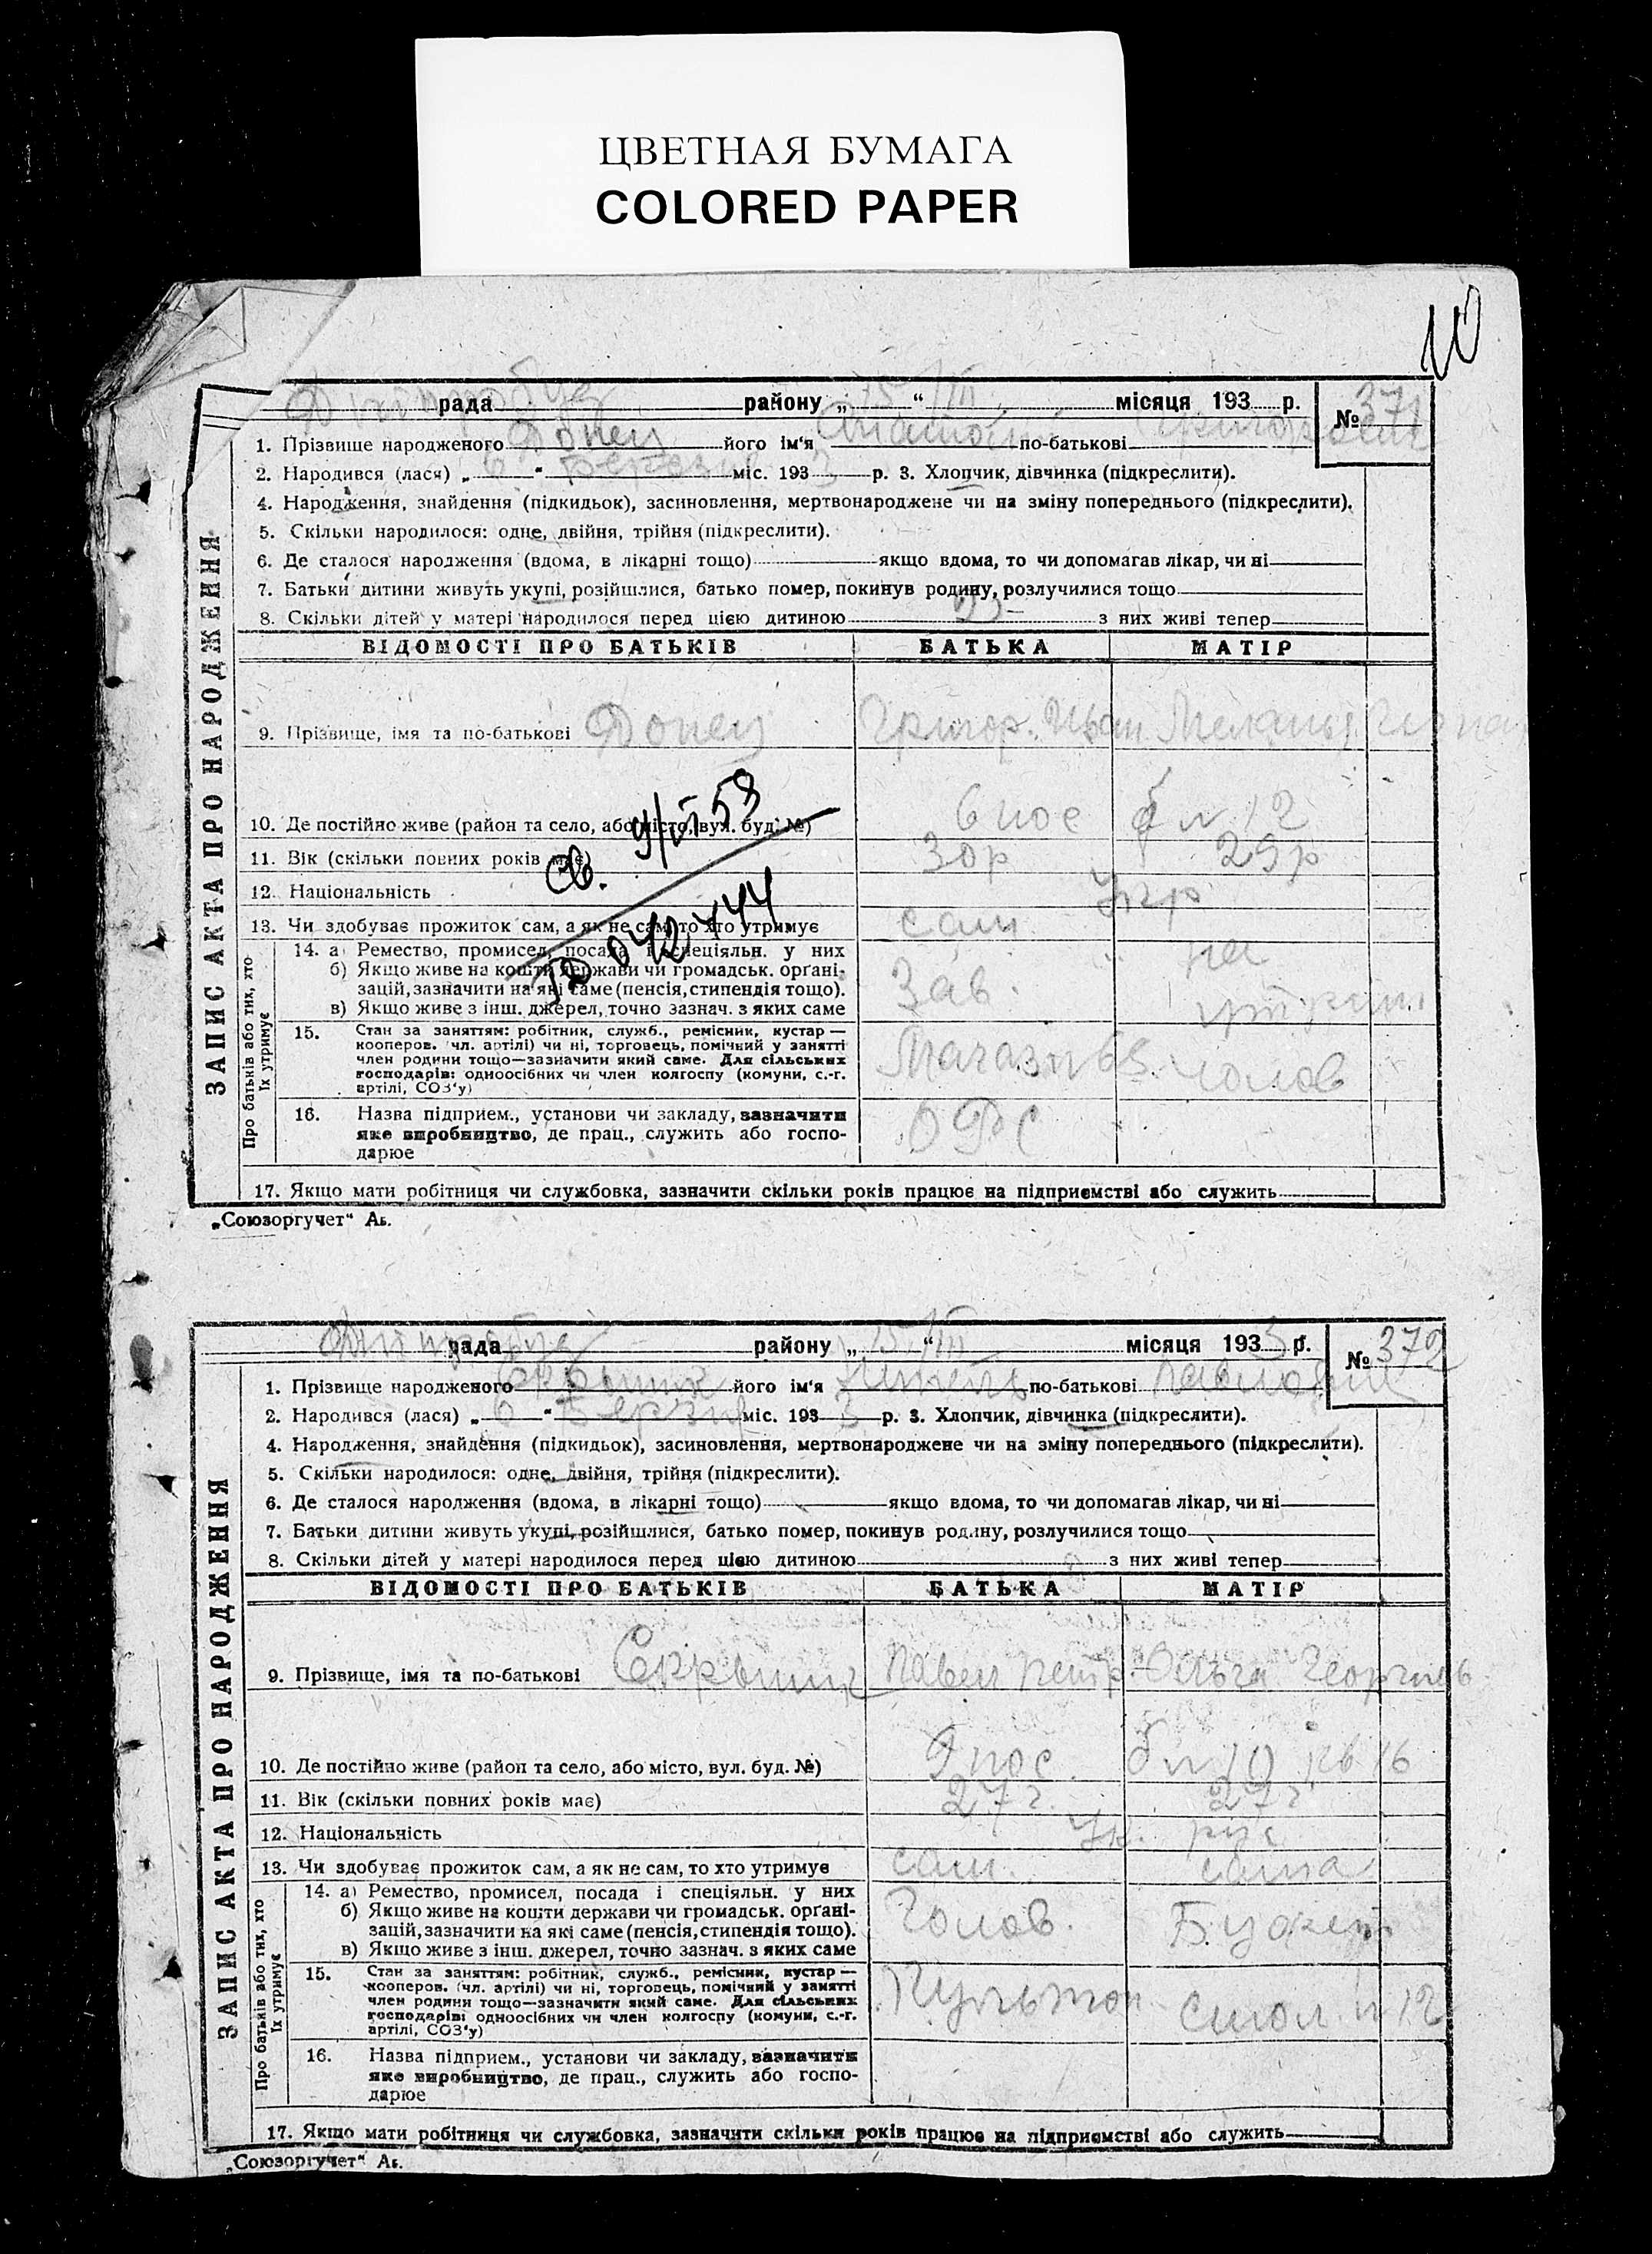 ЦВЕТНАЯ БУМАГА
COLORED PAPER
10
рада району „ 15/III “ місяця 193 р. № 371
1. Прізвище народженого Донец його ім'я по-батькові
2. Народився (лася) „ 6 “ міс. 193 3 р. 3. Хлопчик, дівчинка (підкреслити).
4. Народження, знайдення (підкидьок), засиновлення, мертвонароджене чи на зміну попереднього (підкреслити).
5. Скільки народилося: одне, двійня, трійня (підкреслити).
6. Де сталося народження (вдома, в лікарні тощо) якщо вдома, то чи допомагав лікар, чи ні
7. Батьки дитини живуть укупі, розійшлися, батько помер, покинув родину, розлучилися тощо
8. Скільки дітей у матері народилося перед цією дитиною з них живі тепер
ЗАПИС АКТА ПРО НАРОДЖЕННЯ
ВІДОМОСТІ ПРО БАТЬКІВ БАТЬКА МАТІР
9. Прізвище, імя та по-батькові Донец Григор. Иван
10. Де постійно живе (район та село, або місто, вул. буд. №) 6 пос б n 12
11. Вік (скільки повних років має) 30р 29р
12. Національність Укр
13. Чи здобуває прожиток сам, а як не сам, то хто утримує сам на
Про батьків або тих, хто їх утримує
14. а) Ремество, промисел, посада і спеціяльн. у них
б) Якщо живе на кошти держави чи громадськ. орґані-
зацій, зазначити на які саме (пенсія, стипендія тощо). Зав.
в) Якщо живе з інш. джерел, точно зазнач. з яких саме
15. Стан за заняттям: робітник, служб., ремісник, кустар —
кооперов. (чл. артілі) чи ні, торговець, помічний у занятті
член родини тощо—зазначити який саме. Для сільських
господарів: одноосібних чи член колгоспу (комуни, с.-г.
артілі, СОЗ'у)
Магазин чолов
16. Назва підприєм., установи чи закладу, зазначити
яке виробництво, де прац., служить або госпо-
дарює
17. Якщо мати робітниця чи службовка, зазначити скільки років працює на підприємстві або служить
„Союзоргучет“
рада району „ 15/III “ місяця 193 3 р. № 372
1. Прізвище народженого його ім'я по-батькові
2. Народився (лася) „ 6 “ міс. 193 3 р. 3. Хлопчик, дівчинка (підкреслити).
4. Народження, знайдення (підкидьок), засиновлення, мертвонароджене чи на зміну попереднього (підкреслити).
5. Скільки народилося: одне, двійня, трійня (підкреслити).
6. Де сталося народження (вдома, в лікарні тощо) якщо вдома, то чи допомагав лікар, чи ні
7. Батьки дитини живуть укупі, розійшлися, батько помер, покинув родину, розлучилися тощо
8. Скільки дітей у матері народилося перед цією дитиною з них живі тепер
ЗАПИС АКТА ПРО НАРОДЖЕННЯ
ВІДОМОСТІ ПРО БАТЬКІВ БАТЬКА МАТІР
9. Прізвище, імя та по-батькові Павел Петр Ольга Георгиев
10. Де постійно живе (район та село, або місто, вул. буд. №) 9 пос. б n 10 кв 16
11. Вік (скільки повних років має) 27 г. 27 г
12. Національність Ук. рус
13. Чи здобуває прожиток сам, а як не сам, то хто утримує сам. сама
Про батьків або тих, хто їх утримує
14. а) Ремество, промисел, посада і спеціяльн. у них
б) Якщо живе на кошти держави чи громадськ. орґані-
зацій, зазначити на які саме (пенсія, стипендія тощо). Голов. Буфет
в) Якщо живе з інш. джерел, точно зазнач. з яких саме
15. Стан за заняттям: робітник, служб., ремісник, кустар —
кооперов. (чл. артілі) чи ні, торговець, помічний у занятті
член родини тощо—зазначити який саме. Для сільських
господарів: одноосібних чи член колгоспу (комуни, с.-г.
артілі, СОЗ'у)
стол. n 12
16. Назва підприєм., установи чи закладу, зазначити
яке виробництво, де прац., служить або госпо-
дарює
17. Якщо мати робітниця чи службовка, зазначити скільки років працює на підприємстві або служить
„Союзоргучет“